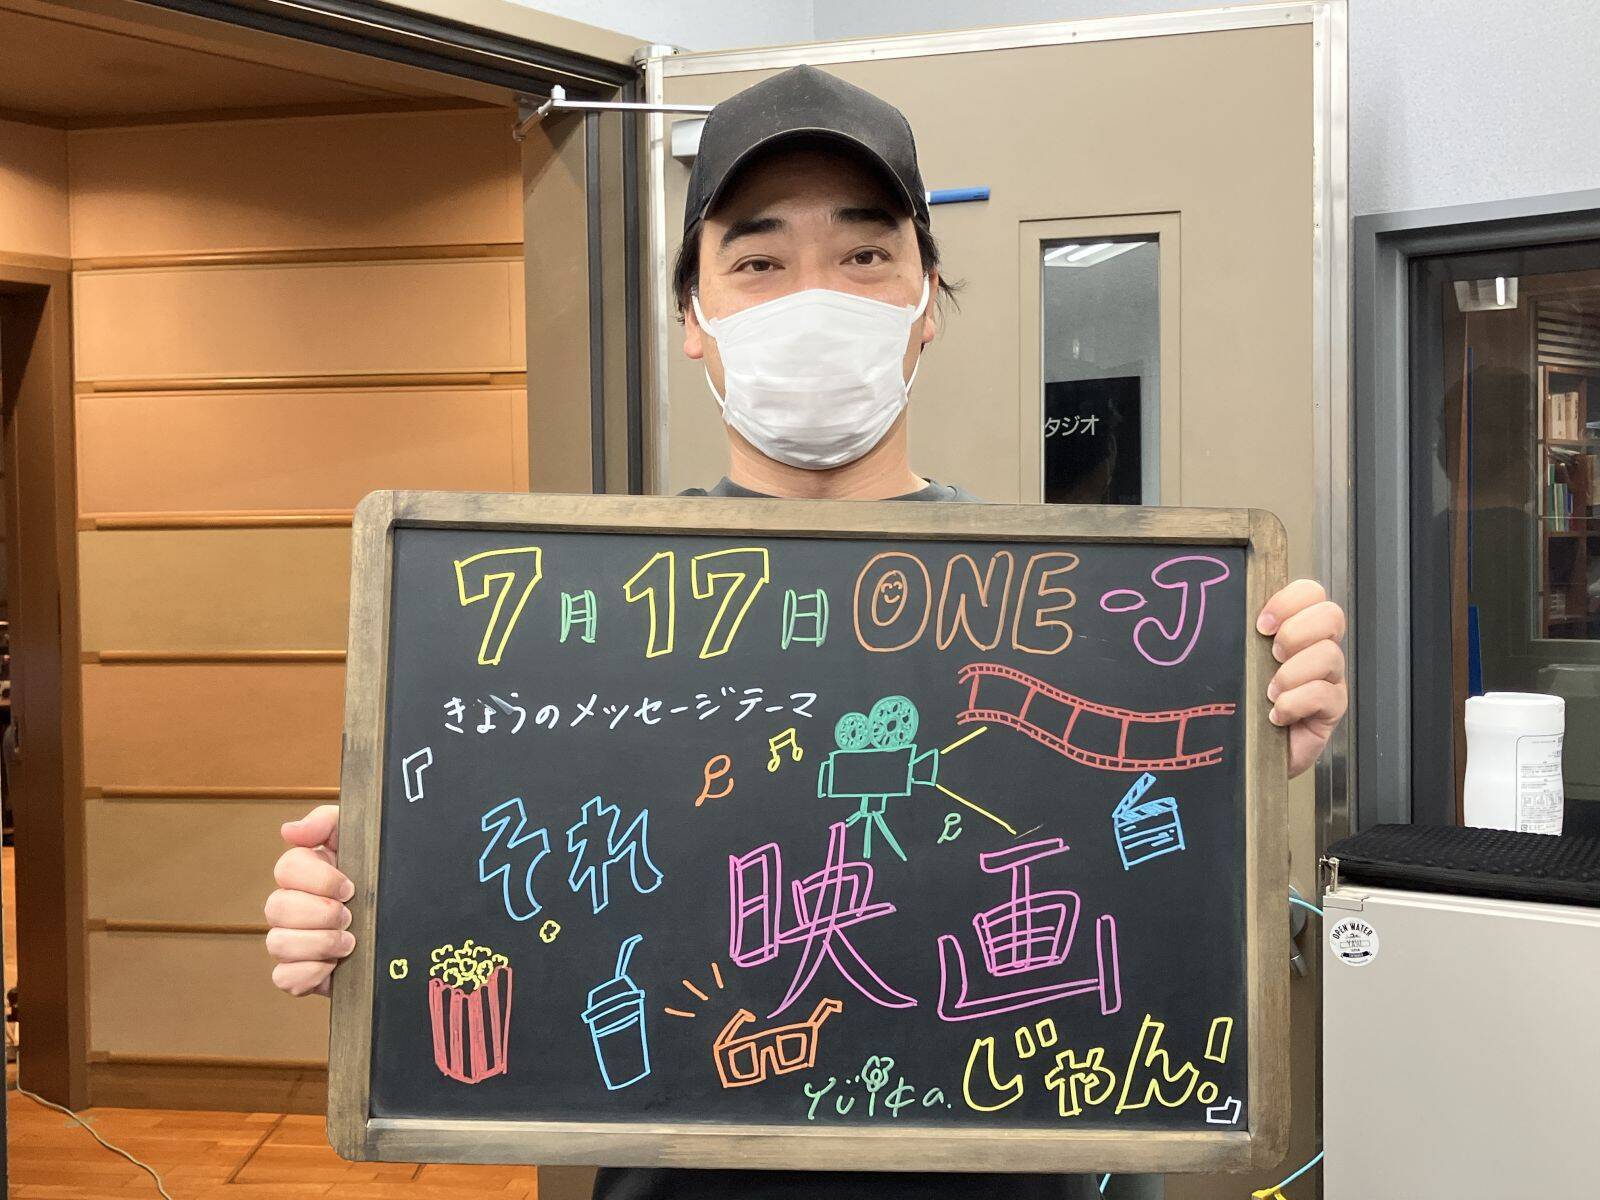 7月17日 ONE-J
きょうのメッセージテーマ
「それ
映画
じゃん!」
Yüika.
タジオ
OPEN WATER